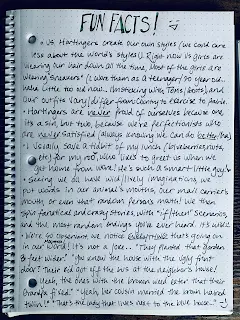 FUN FACTS!
• Us Hartingers create our own styles (we could care
less about the world's styles!). Right now us girls are
wearing our hair down all the time, Most of the girls are
wearing sneakers (I wore them as a teenager) 30 year old..
haha Little too old now.. I'm sticking with Toms/boots) and
our outfits vary/differ from country to exercise to
• Hartingers are never proud of ourselves one,
its a sin, but two, because we're perfectionists who
are never satisfied (always knowing we can do better/
• I usually save a tidbit of my lunch (blueberries, nuts,
etc) for my roo, who likes to greet us when we
get home from work. He's such a smart little guy!
• Seeing we all have wild/lively imaginations we
put words in our animal's mouths, our mail carrier's
mouth, or even that random person's mouth! We then
spin fanatical and crazy stories, with "if/then" scenerios,
and the most random endings you've ever heard. It's wild.
• We're observant, we notice everything that's going on
in our world! It's not a joke... "They planted that garden
8 feet wider." "You know the house with the ugly front
door? Their kid got off the bus at the neighbor's house!
Yeah, the ones with the brown weed eater that their
Grandpa fixed." "Yeah, her cousin married the brown haired
" "That's the lady that lives next to the blue house.."